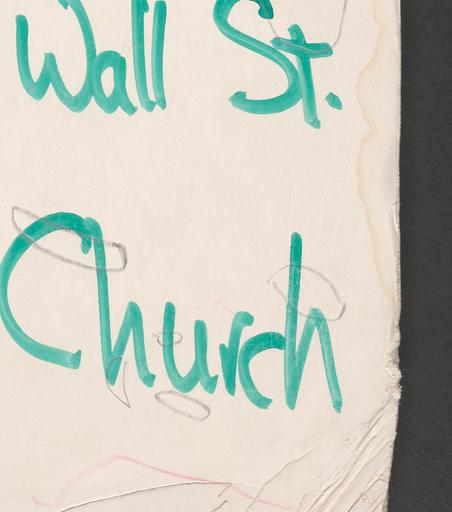 Wall St.
Church